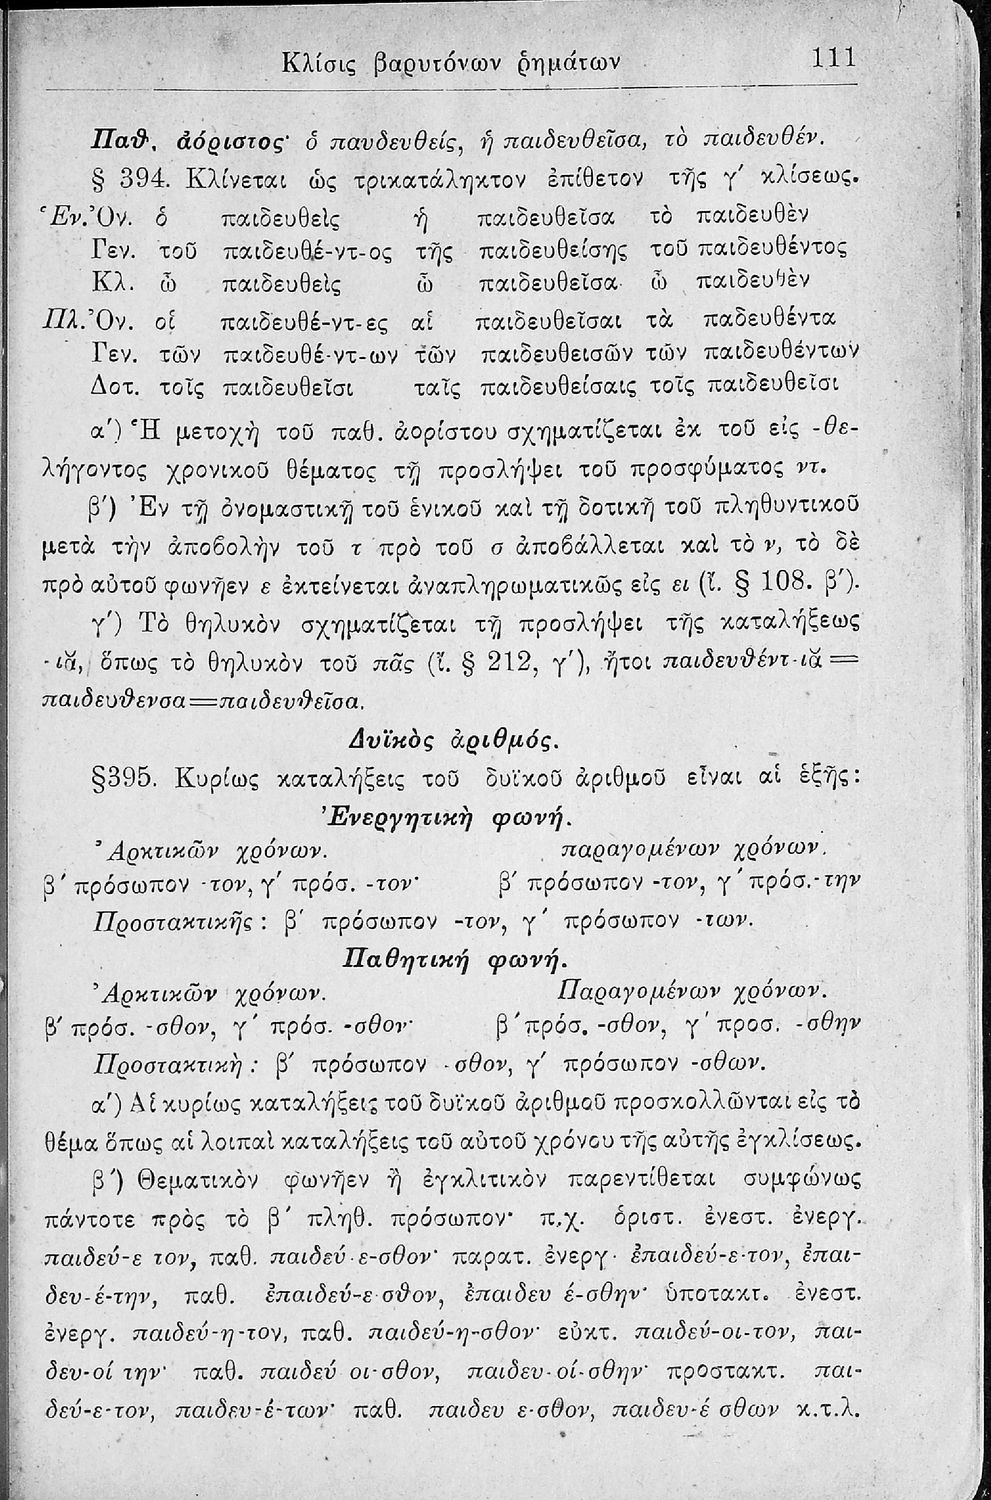 Κλίσις βαρυτόνων ῥημάτων 111
Παθ. ἀόριστος· ὁ παυδευθείς, ἡ παιδευθεῖσα, τὸ παιδευθέν.
§ 394. Κλίνεται ὡς τρικατάληκτον ἐπίθετον τῆς γ΄ κλίσεως.
Ἑν. Ὀν. ὁ παιδευθεὶς ἡ παιδευθεῖσα τὸ παιδευθὲν
Γεν. τοῦ παιδευθέ-ντ-ος τῆς παιδευθείσης τοῦ παιδευθέντος
Κλ. ὦ παιδευθεὶς ὦ παιδευθεῖσα ὦ παιδευθὲν
Πλ. Ὀν. οἱ παιδευθέ-ντ-ες αἱ παιδευθεῖσαι τὰ παδευθέντα
Γεν. τῶν παιδευθέ-ντ-ων τῶν παιδευθεισῶν τῶν παιδευθέντων
Δοτ. τοῖς παιδευθεῖσι ταῖς παιδευθείσαις τοῖς παιδευθεῖσι
α΄) Ἡ μετοχὴ τοῦ παθ. ἀορίστου σχηματίζεται ἐκ τοῦ εἰς -θε-
λήγοντος χρονικοῦ θέματος τῇ προσλήψει τοῦ προσφύματος ντ.
β΄) Ἐν τῇ ὀνομαστικῇ τοῦ ἑνικοῦ καὶ τῇ δοτικῇ τοῦ πληθυντικοῦ
μετὰ τὴν ἀποβολὴν τοῦ τ πρὸ τοῦ σ ἀποβάλλεται καὶ τὸ ν, τὸ δὲ
πρὸ αὐτοῦ φωνῆεν ε ἐκτείνεται ἀναπληρωματικῶς εἰς ει (ἴ. § 108. β΄).
γ΄) Τὸ θηλυκὸν σχηματίζεται τῇ προσλήψει τῆς καταλήξεως
-ιᾰ, ὅπως τὸ θηλυκὸν τοῦ πᾶς (ἴ. § 212, γ΄), ἤτοι παιδευθέντ-ιᾰ =
παιδευθενσα=παιδευθεῖσα.
Δυϊκὸς ἀριθμός.
§395. Κυρίως καταλήξεις τοῦ δυϊκοῦ ἀριθμοῦ εἶναι αἱ ἑξῆς:
Ἐνεργητικὴ φωνή.
Ἀρκτικῶν χρόνων. παραγομένων χρόνων.
β΄ πρόσωπον -τον, γ΄ πρόσ. -τον· β΄ πρόσωπον -τον, γ΄ πρόσ.-την
Προστακτικῆς : β΄ πρόσωπον -τον, γ΄ πρόσωπον -των.
Παθητική φωνή.
Ἀρκτικῶν χρόνων. Παραγομένων χρόνων.
β΄ πρόσ. -σθον, γ΄ πρόσ. -σθον· β΄ πρόσ. -σθον, γ΄ προσ. -σθην
Προστακτικὴ : β΄ πρόσωπον -σθον, γ΄ πρόσωπον -σθων.
α΄) Αἱ κυρίως καταλήξεις τοῦ δυϊκοῦ ἀριθμοῦ προσκολλῶνται εἰς τὸ
θέμα ὅπως αἱ λοιπαὶ καταλήξεις τοῦ αὐτοῦ χρόνου τῆς αὐτῆς ἐγκλίσεως.
β΄) Θεματικὸν φωνῆεν ἢ ἐγκλιτικὸν παρεντίθεται συμφώνως
πάντοτε πρὸς τὸ β΄ πληθ. πρόσωπον· π.χ. ὁριστ. ἐνεστ. ἐνεργ.
παιδεύ-ε τον, παθ. παιδεύ ε-σθον· παρατ. ἐνεργ. ἐπαιδεύ-ε-τον, ἐπαι-
δευ-έ-την, παθ. ἐπαιδεύ-ε σθον, ἐπαιδευ έ-σθην· ὑποτακτ. ἐνεστ.
ἐνεργ. παιδεύ-η-τον, παθ. παιδεύ-η-σθον· εὐκτ. παιδεύ-οι-τον, παι-
δευ-οί την· παθ. παιδεύ οι-σθον, παιδευ-οί-σθην· προστακτ. παι-
δεύ-ε-τον, παιδευ-έ-των· παθ. παιδευ ε-σθον, παιδευ-έ σθων κ.τ.λ.